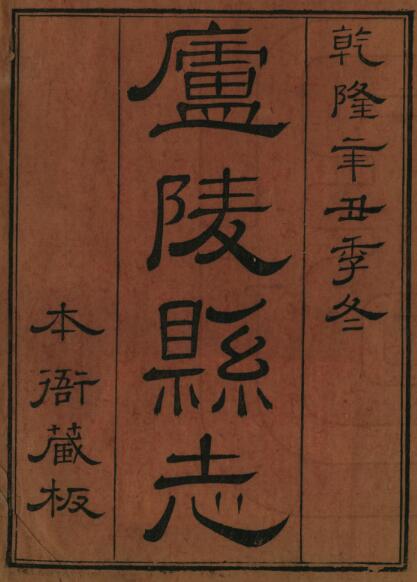 乾隆辛丑季冬
廬陵縣志
本衙藏板